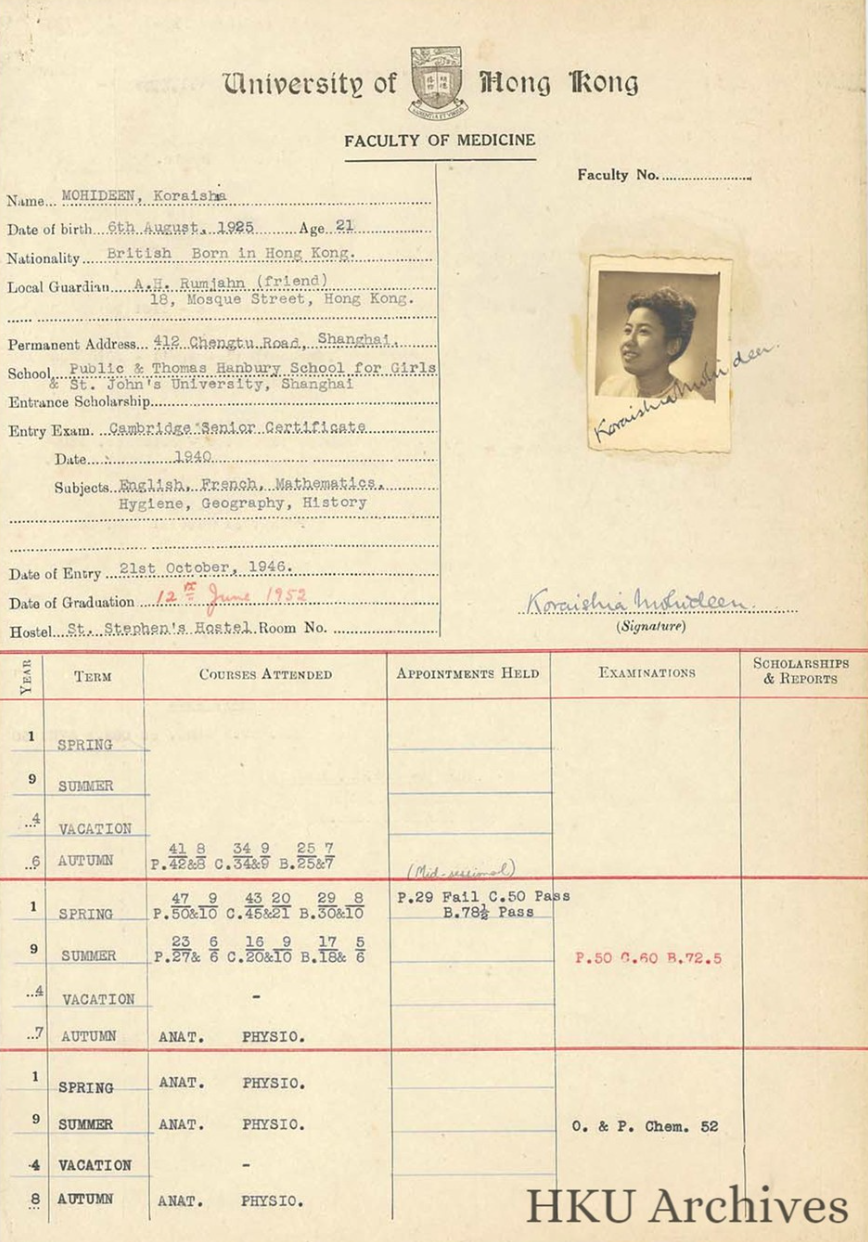 University of Hong Kong
FACULTY OF MEDICINE
Faculty No.
Name MOHIDEEN, Koraisha
Date of birth 6th August, 1925 Age 21
Nationality British Born in Hong Kong.
Local Guardian A.H. Rumjahn (friend)
18, Mosque Street, Hong Kong.
Permanent Address 412 Chengtu Road, Shanghai.
School Public & Thomas Hanbury School for Girls
& St. John's University, Shanghai
Entrance Scholarship
Entry Exam. Cambridge Senior Certificate
Date 1940
Subjects English, French, Mathematics,
Hygiene, Geography, History
Date of Entry 21st October, 1946.
Date of Graduation 12th June 1952
Hostel St. Stephen's Hostel Room No.
Koraishia Mohideen
Koraishia Mohideen
(Signature)
YEAR TERM COURSES ATTENDED APPOINTMENTS HELD EXAMINATIONS SCHOLARSHIPS & REPORTS
1 SPRING
9 SUMMER
4 VACATION
41 8 34 9 25 7
6 AUTUMN P.42&8 C.34&9 B.25&7
(Mid-sessional)
47 9 43 20 29 8 P.29 Fail C.50 Pass
1 SPRING P.50&10 C.45&21 B.30&10 B.78½ Pass
23 6 16 9 17 5
9 SUMMER P.27& 6 C.20&10 B.18& 6 P.50 C.60 B.72.5
4 VACATION -
7 AUTUMN ANAT. PHYSIO.
1 SPRING ANAT. PHYSIO.
9 SUMMER ANAT. PHYSIO. O. & P. Chem. 52
4 VACATION -
8 AUTUMN ANAT. PHYSIO.
HKU Archives